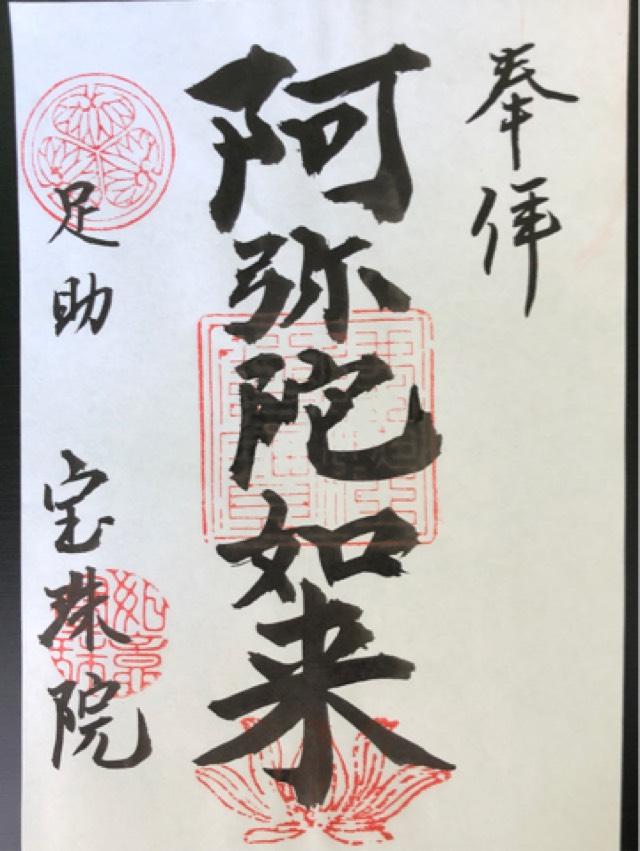 奉拝
阿弥陀如来
足助 宝珠院